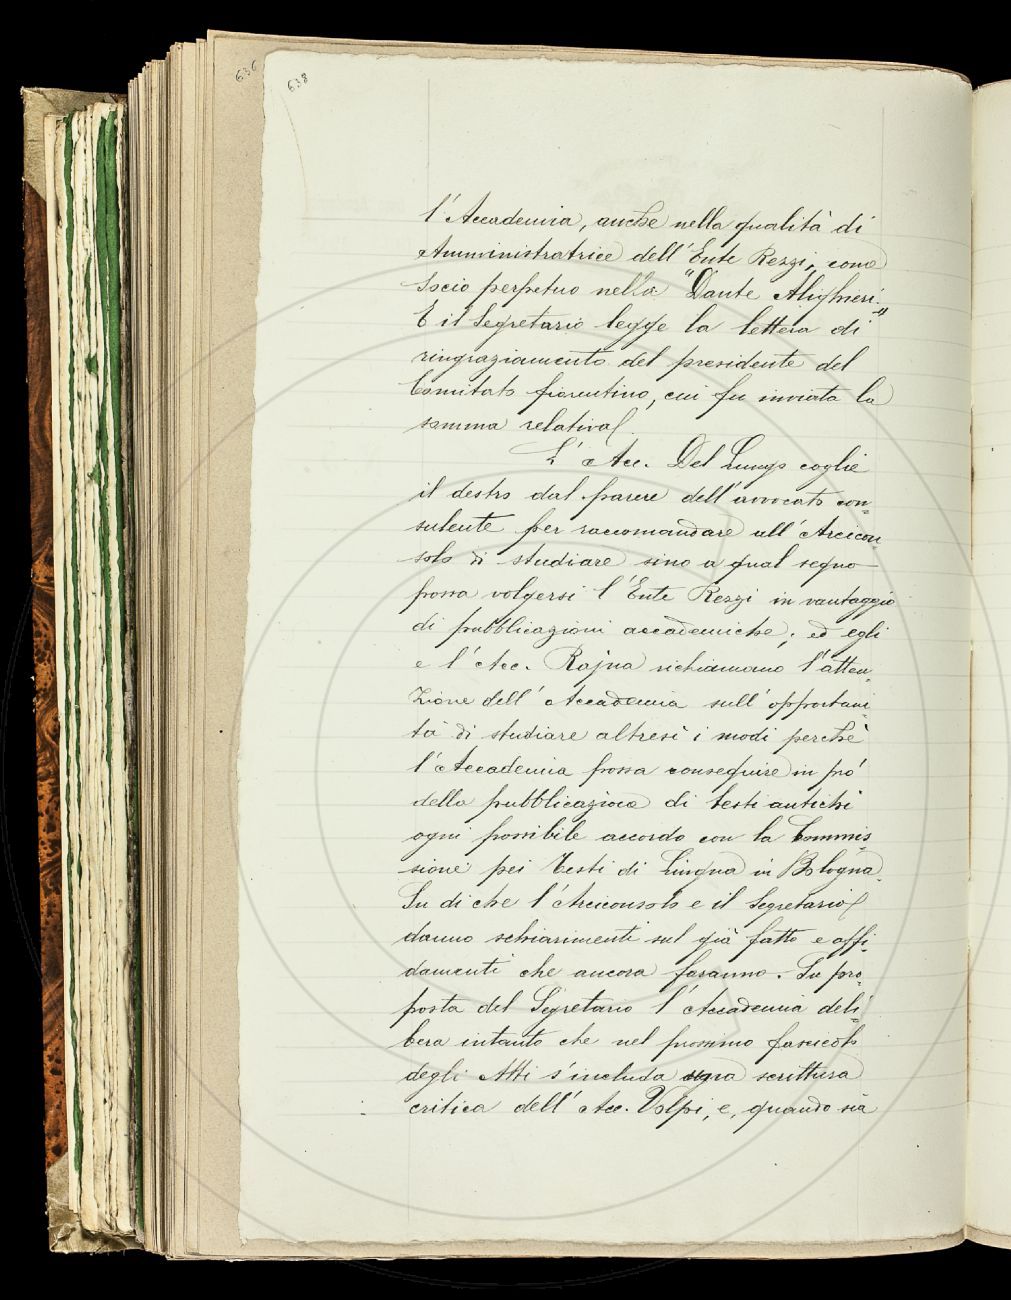 636
638
l'Accademia, anche nella qualità di
Amministratrice dell'Ente Rezzi, come
Socio perpetuo nella "Dante Alighieri."
E il Segretario legge la lettera di
ringraziamento del presidente del
Comitato fiorentino, cui fu inviata la
somma relativa.
L'Acc. Del Lungo coglie
il destro dal parere dell'avvocato con=
sulente per raccomandare all'Arcicon=
solo di studiare sino a qual segno
possa volgersi l'Ente Rezzi in vantaggio
di pubblicazioni accademiche; ed egli
e l'Acc. Rajna richiamano l'atten=
zione dell'Accademia sull'opportuni=
tà di studiare altresì i modi perchè
l'Accademia possa conseguire in prò
della pubblicazione di testi antichi
ogni possibile accordo con la Commis=
sione pei Testi di Lingua in Bologna.
Su di che l'Arciconsolo e il Segretario
danno schiarimenti sul già fatto e affi=
damenti che ancora faranno. Su pro=
posta del Segretario l'Accademia deli=
bera intanto che nel prossimo fascicolo
degli Atti s'includa una scrittura
critica dell'Acc. Volpi, e, quando sia